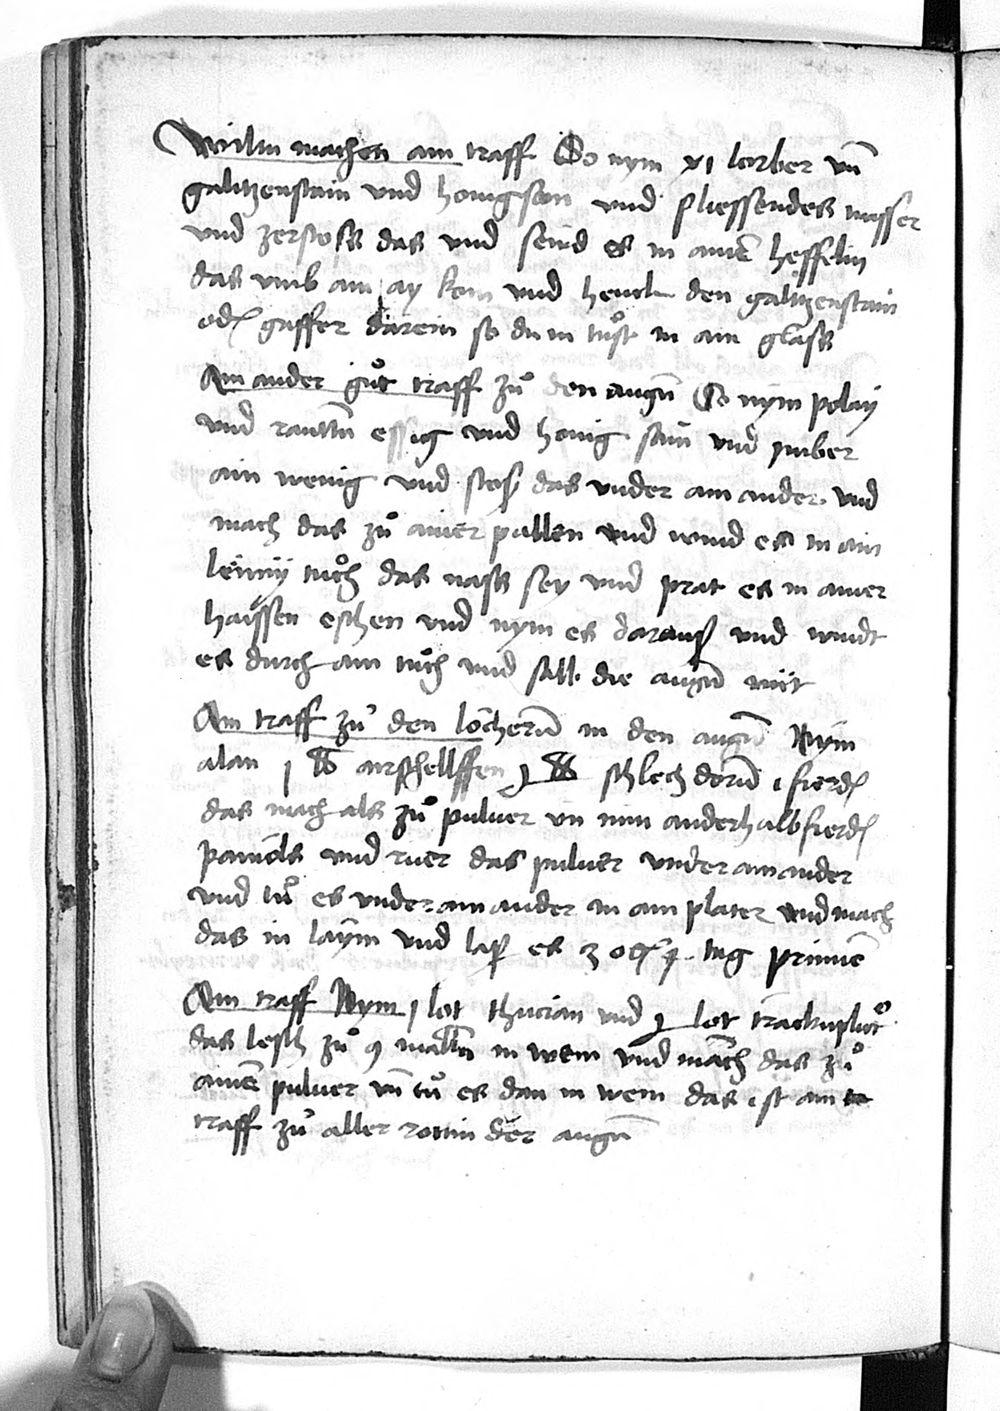 Wiltu machen ain traff So nym xi lorber vn̄
galitzenstain vnd honigsam vnd fliessendes wasser
vnd zerstoss das vnd seud es in ainē heffelin
das vmb ain ay kom vnd henck den galitzenstain
od gaffer darein so du in tuͦst in ain glass
Ain ander guͦt traff zuͦ den augn̄ So nym polay
vnd rauttn̄ essig vnd honig saim vnd ymber
ain wenig vnd stoss das vnder ain ander vnd
mach das zuͦ ainer pallen vnd wind es in ain
leiny tuͦch das nass sey vnd prat es in ainer
haissen eschen vnd nym es darauss vnd windt
es durch ain tuͦch vnd salb die augn̄ mit
Ain traff zuͦ den löcherū in den augn̄ Nym
alan j lb airschellffen j lb schlechdorn̄ i fierd
das mach als zuͦ puluer vn nim anderhalb fierd
vnd ruer das puluer vnder ain ander
vnd tuͦ es vnder ain ander in ain plater vnd mach
das in laym vnd lass es 3 od 4 tag prinnē
Ain traff Nym j lot thucian vnd j lot
das lesch zuͦ 9 malln in wein vnd mach das zuͦ
ainē puluer vn̄ tuͦ es dan in wein das ist ain
traff zuͦ aller rottin der augn̄